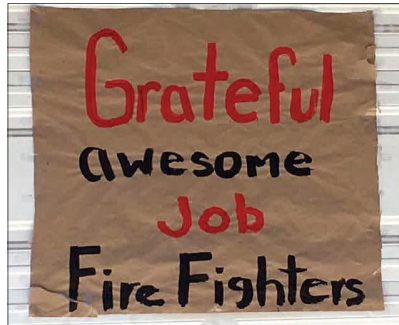 Grateful
awesome
Job
Fire Fighters